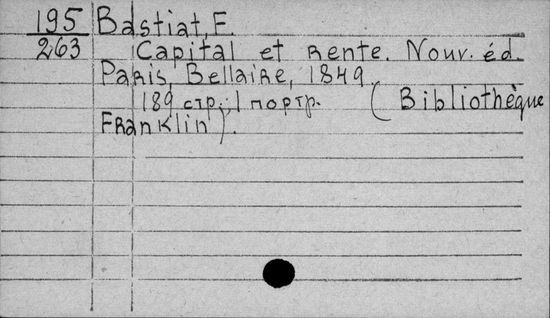 195 Bastiat, F.
263 Capital et rente. Nouv. éd.
Paris, Bellaire, 1849.
189 стр., 1 портр. (Bibliothèque
Franklin).